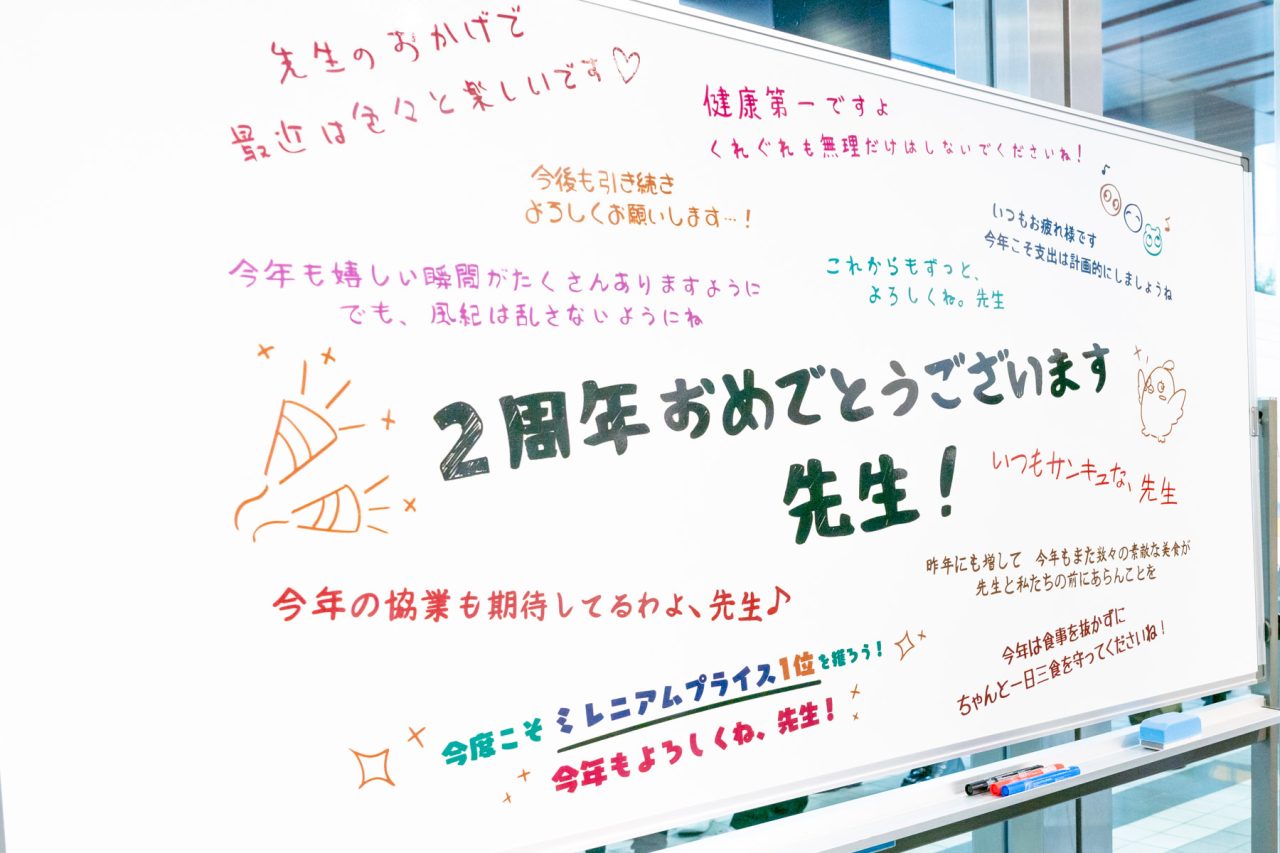 先生のおかげで
最近は色々と楽しいです♡
健康第一ですよ
くれぐれも無理だけはしないでくださいね！
今後も引き続き
よろしくお願いします…！
いつもお疲れ様です
今年こそ支出は計画的にしましょうね
今年も嬉しい瞬間がたくさんありますように
でも、風紀は乱さないようにね
これからもずっと、
よろしくね。先生
2周年おめでとうございます
先生！
いつもサンキュな、先生
昨年にも増して　今年もまた数々の素敵な美食が
先生と私たちの前にあらんことを
今年の協業も期待してるわよ、先生♪
今年は食事を抜かずに
ちゃんと一日三食を守ってくださいね！
今度こそミレニアムプライス1位を獲ろう！
今年もよろしくね、先生！